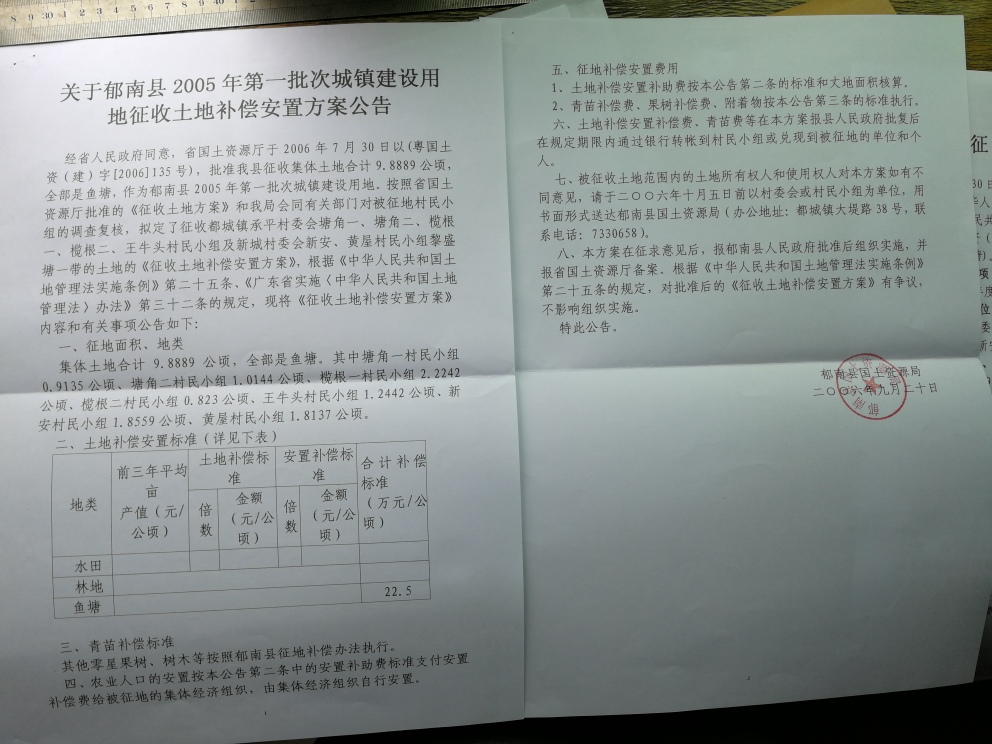 关于郁南县 2005 年第一批次城镇建设用
地征收土地补偿安置方案公告
经省人民政府同意，省国土资源厅于 2006 年 7 月 30 日以(粤国土
资（建）字[2006]135 号)，批准我县征收集体土地合计 9.8889 公顷，
全部是鱼塘，作为郁南县 2005 年第一批次城镇建设用地。按照省国土
资源厅批准的《征收土地方案》和我局会同有关部门对被征地村民小
组的调查复核，拟定了征收都城镇承平村委会塘角一、塘角二、榄根
一、榄根二、王牛头村民小组及新城村委会新安、黄屋村民小组黎盛
塘一带的土地的《征收土地补偿安置方案》，根据《中华人民共和国土
地管理法实施条例》第二十五条、《广东省实施〈中华人民共和国土地
管理法〉办法》第三十二条的规定，现将《征收土地补偿安置方案》
内容和有关事项公告如下:
一、征地面积、地类
集体土地合计 9.8889 公顷，全部是鱼塘。其中塘角一村民小组
0.9135 公顷、塘角二村民小组 1.0144 公顷、榄根一村民小组 2.2242
公顷、榄根二村民小组 0.823 公顷、王牛头村民小组 1.2442 公顷、新
安村民小组 1.8559 公顷、黄屋村民小组 1.8137 公顷。
二、土地补偿安置标准（详见下表）
地类
前三年平均
亩
产值（元/
公顷）
土地补偿标
准
安置补偿标
准
合计补偿
标准
（万元/公
顷）
倍
数
金额
（元/公
顷）
倍
数
金额
（元/公
顷）
水田
林地
鱼塘
22.5
三、青苗补偿标准
其他零星果树、树木等按照郁南县征地补偿办法执行。
四、农业人口的安置按本公告第二条中的安置补助费标准支付安置
补偿费给被征地的集体经济组织，由集体经济组织自行安置。
1
五、征地补偿安置费用
1、土地补偿安置补助费按本公告第二条的标准和丈地面积核算。
2、青苗补偿费、果树补偿费、附着物按本公告第三条的标准执行。
六、土地补偿安置补偿费、青苗费等在本方案报县人民政府批复后
在规定期限内通过银行转帐到村民小组或兑现到被征地的单位和个
人。
七、被征收土地范围内的土地所有权人和使用权人对本方案如有不
同意见，请于二〇〇六年十月五日前以村委会或村民小组为单位，用
书面形式送达郁南县国土资源局（办公地址：都城镇大堤路 38 号，联
系电话：7330658）。
八、本方案在征求意见后，报郁南县人民政府批准后组织实施，并
报省国土资源厅备案．根据《中华人民共和国土地管理法实施条例》
第二十五条的规定，对批准后的《征收土地补偿安置方案》有争议，
不影响组织实施。
特此公告。
郁南县国土资源局
二〇〇六年九月二十日
2
征